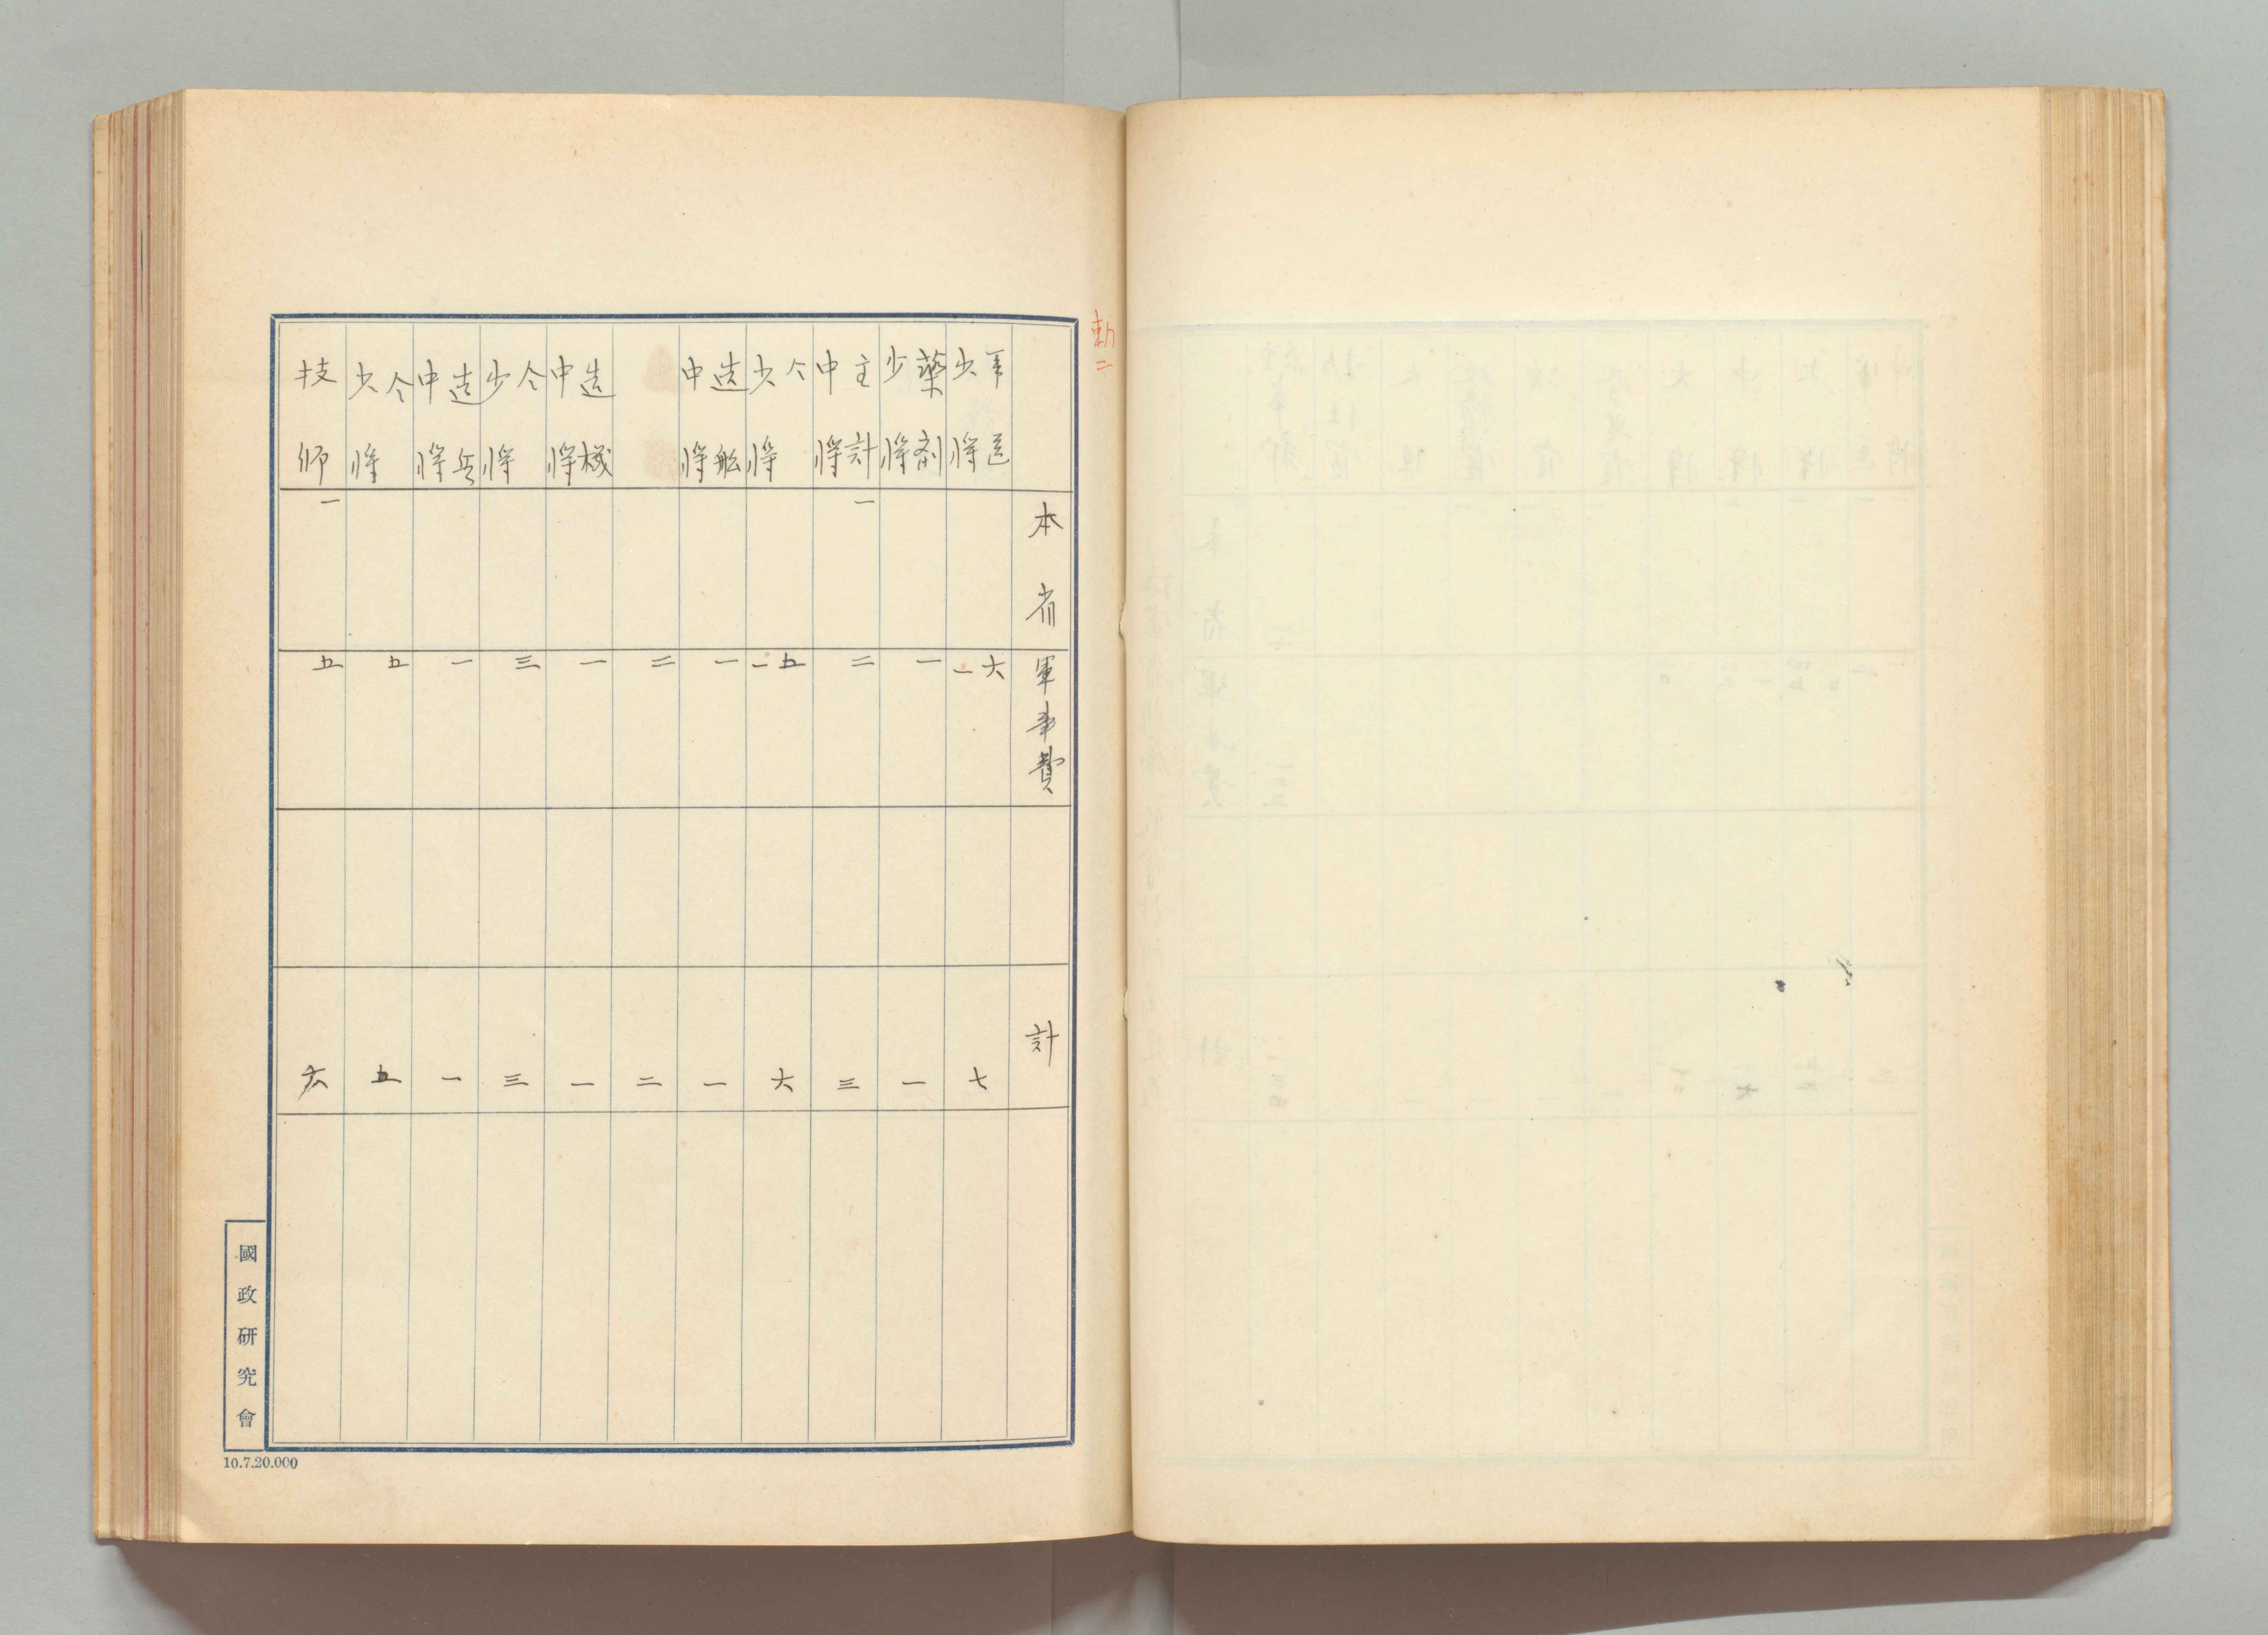 勅二
本省 軍事費 計
軍医少将 六一 七
薬剤少将 一 一
主計中将 一 二 三
仝少将 五一 六
造船中将 一 一
二 二
造機中将 一 一
仝少将 三 三
造兵中将 一 一
仝少将 五 五
技師 一 五 六
國政研究會
10.7.20.000